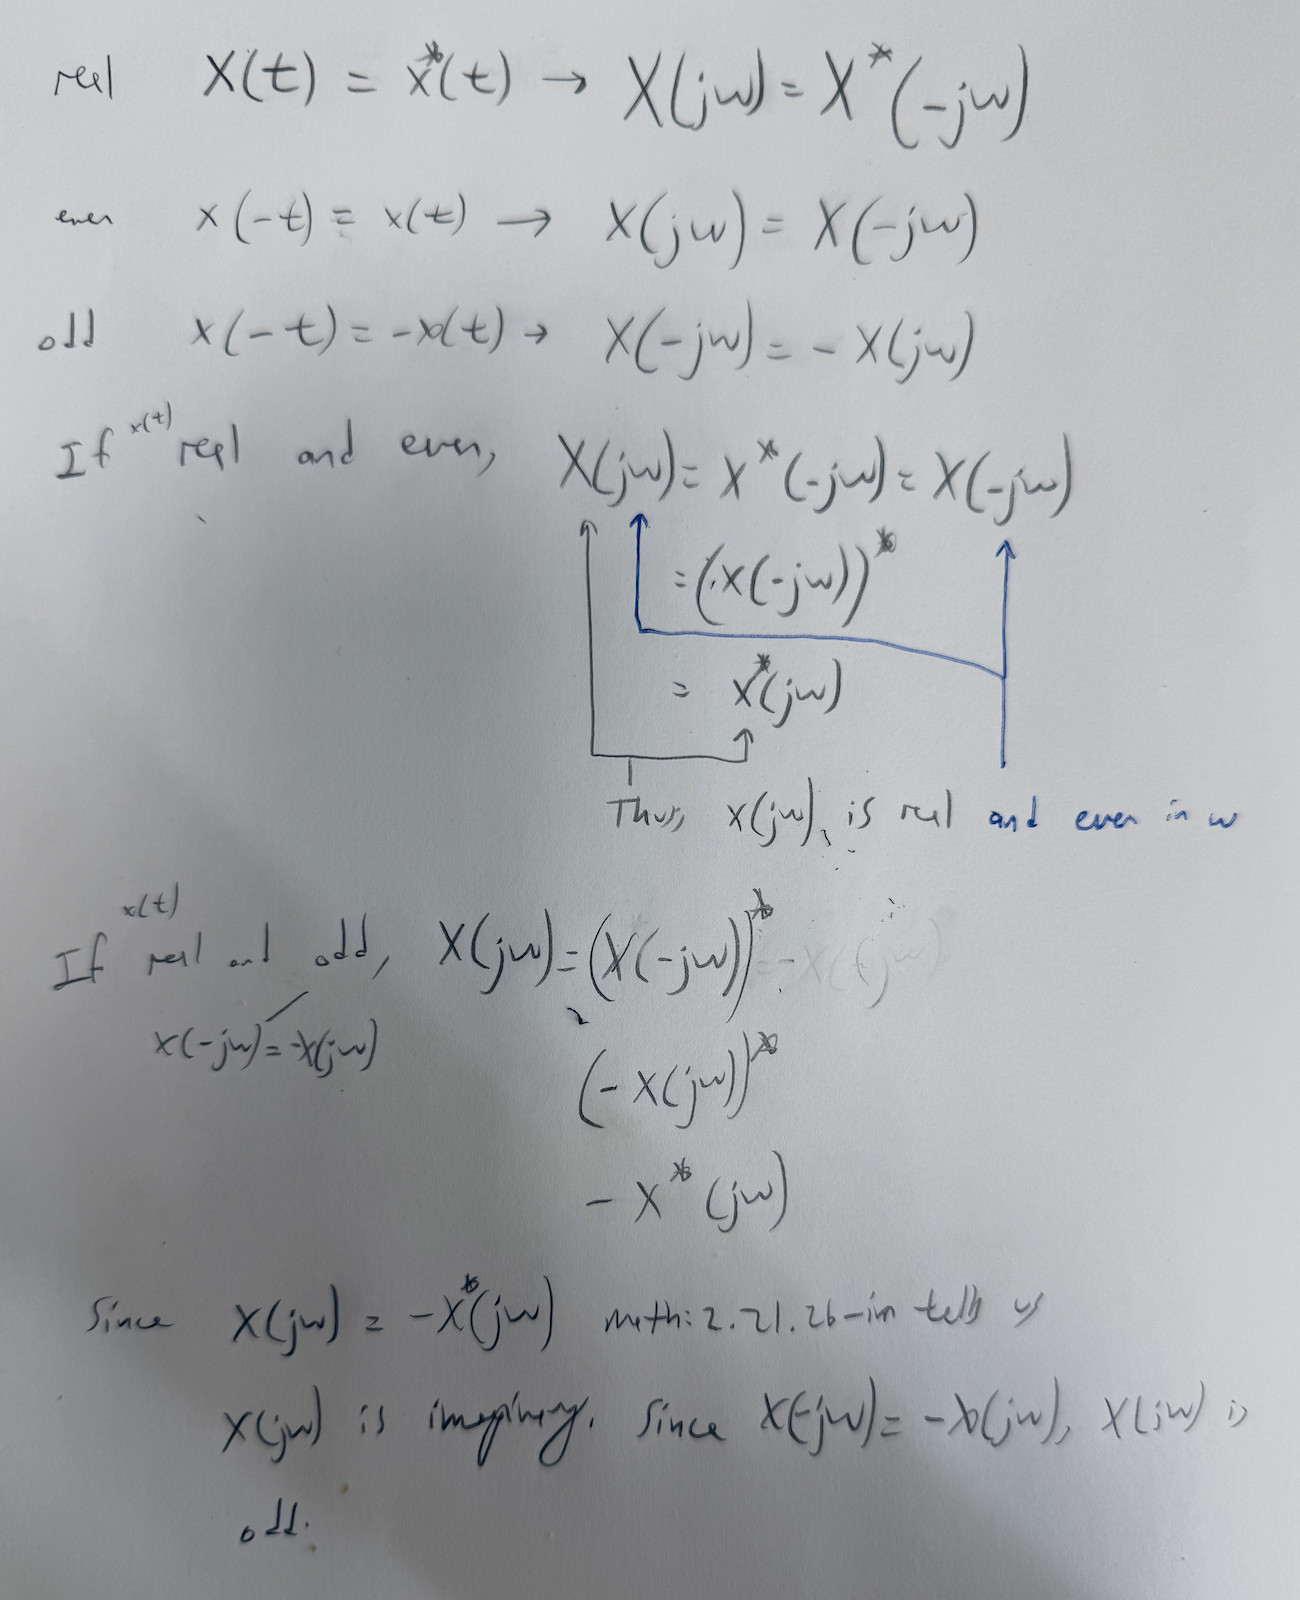 real X(t) = x*(t) → X(jω) = X*(-jω)
even x(-t) = x(t) → X(jω) = X(-jω)
odd x(-t) = -x(t) → X(-jω) = - X(jω)
If x(t) real and even, X(jω) = X*(-jω) = X(-jω)
= (X(-jω))*
= X*(jω)
Thus, X(jω), is real and even in ω
If x(t) real and odd, X(jω) = (X(-jω))* = -X(jω)
X(-jω) = -X(jω)
(-X(jω))*
- X*(jω)
Since X(jω) = -X*(jω) math:2.21.26-im tells us
X(jω) is imaginary. Since X(-jω) = -X(jω), X(jω) is
odd.